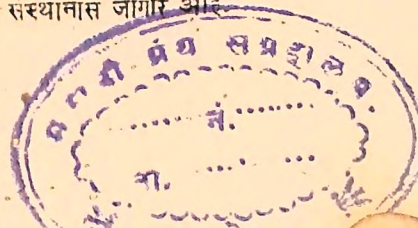 संस्थानास जागीर आहे.
मराठी ग्रंथ संग्रहालय.
........ नं. ........
वा. .... ...